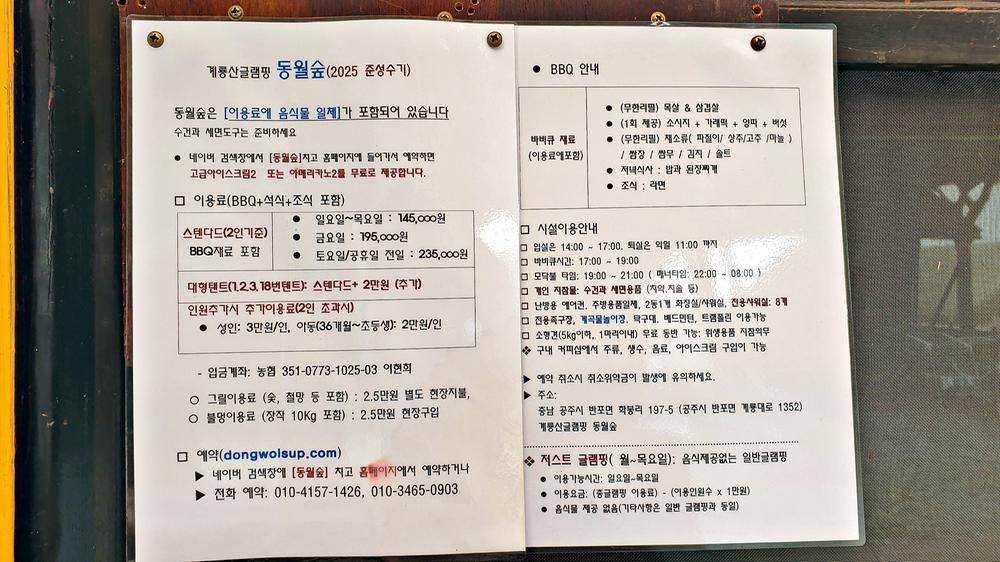 계룡산글램핑 동월숲(2025 준성수기)
동월숲은 [이용료에 음식물 일체]가 포함되어 있습니다
수건과 세면도구는 준비하세요
● 네이버 검색창에서 [동월숲]치고 홈페이지에 들어가서 예약하면
고급아이스크림2 또는 아메리카노2를 무료로 제공합니다.
□ 이용료(BBQ+석식+조식 포함)
스텐다드(2인기준)
BBQ재료 포함
● 일요일~목요일 : 145,000원
● 금요일 : 195,000원
● 토요일/공휴일 전일 : 235,000원
대형텐트(1,2,3,18번텐트): 스텐다드+ 2만원 (추가)
인원추가시 추가이용료(2인 초과시)
● 성인: 3만원/인, 아동(36개월~초등생): 2만원/인
- 입금계좌: 농협 351-0773-1025-03 이현희
○ 그릴이용료 (숯, 철망 등 포함) : 2.5만원 별도 현장지불,
○ 불멍이용료 (장작 10Kg 포함) : 2.5만원 현장구입
□ 예약(dongwolsup.com)
▶ 네이버 검색창에 [동월숲] 치고 홈페이지에서 예약하거나
▶ 전화 예약: 010-4157-1426, 010-3465-0903
● BBQ 안내
바비큐 재료
(이용료에포함)
● (무한리필) 목살 & 삼겹살
● (1회 제공) 소시지 + 가래떡 + 양파 + 버섯
● (무한리필) 채소류( 파절이/ 상추/고추 /마늘 )
/ 쌈장 / 쌈무 / 김치 / 솔트
● 저녁식사 : 밥과 된장찌개
● 조식 : 라면
□ 시설이용안내
□ 입실은 14:00 ~ 17:00. 퇴실은 익일 11:00 까지
□ 바비큐시간: 17:00 ~ 19:00
□ 모닥불 타임: 19:00 ~ 21:00 ( 매너타임: 22:00 ~ 08:00 )
□ 개인 지참물: 수건과 세면용품 (치약,치솔 등)
□ 난방용 에어컨, 주방용품일체, 2동1개 화장실/샤워실, 전용샤워실: 8개
□ 전용족구장, 계곡물놀이장, 탁구대, 베드민턴, 트램폴린 이용가능
□ 소형견(5kg이하, 1마리이내) 무료 동반 가능: 위생용품 지참의무
❖ 구내 커피샵에서 주류, 생수, 음료, 아이스크림 구입이 가능
▶ 예약 취소시 취소위약금이 발생에 유의하세요.
▶ 주소:
충남 공주시 반포면 학봉리 197-5 (공주시 반포면 계룡대로 1352)
계룡산글램핑 동월숲
❖ 저스트 글램핑( 월~목요일): 음식제공없는 일반글램핑
● 이용가능시간: 일요일~목요일
● 이용요금: (총글램핑 이용료) - (이용인원수 x 1만원)
● 음식물 제공 없음(기타사항은 일반 글램핑과 동일)